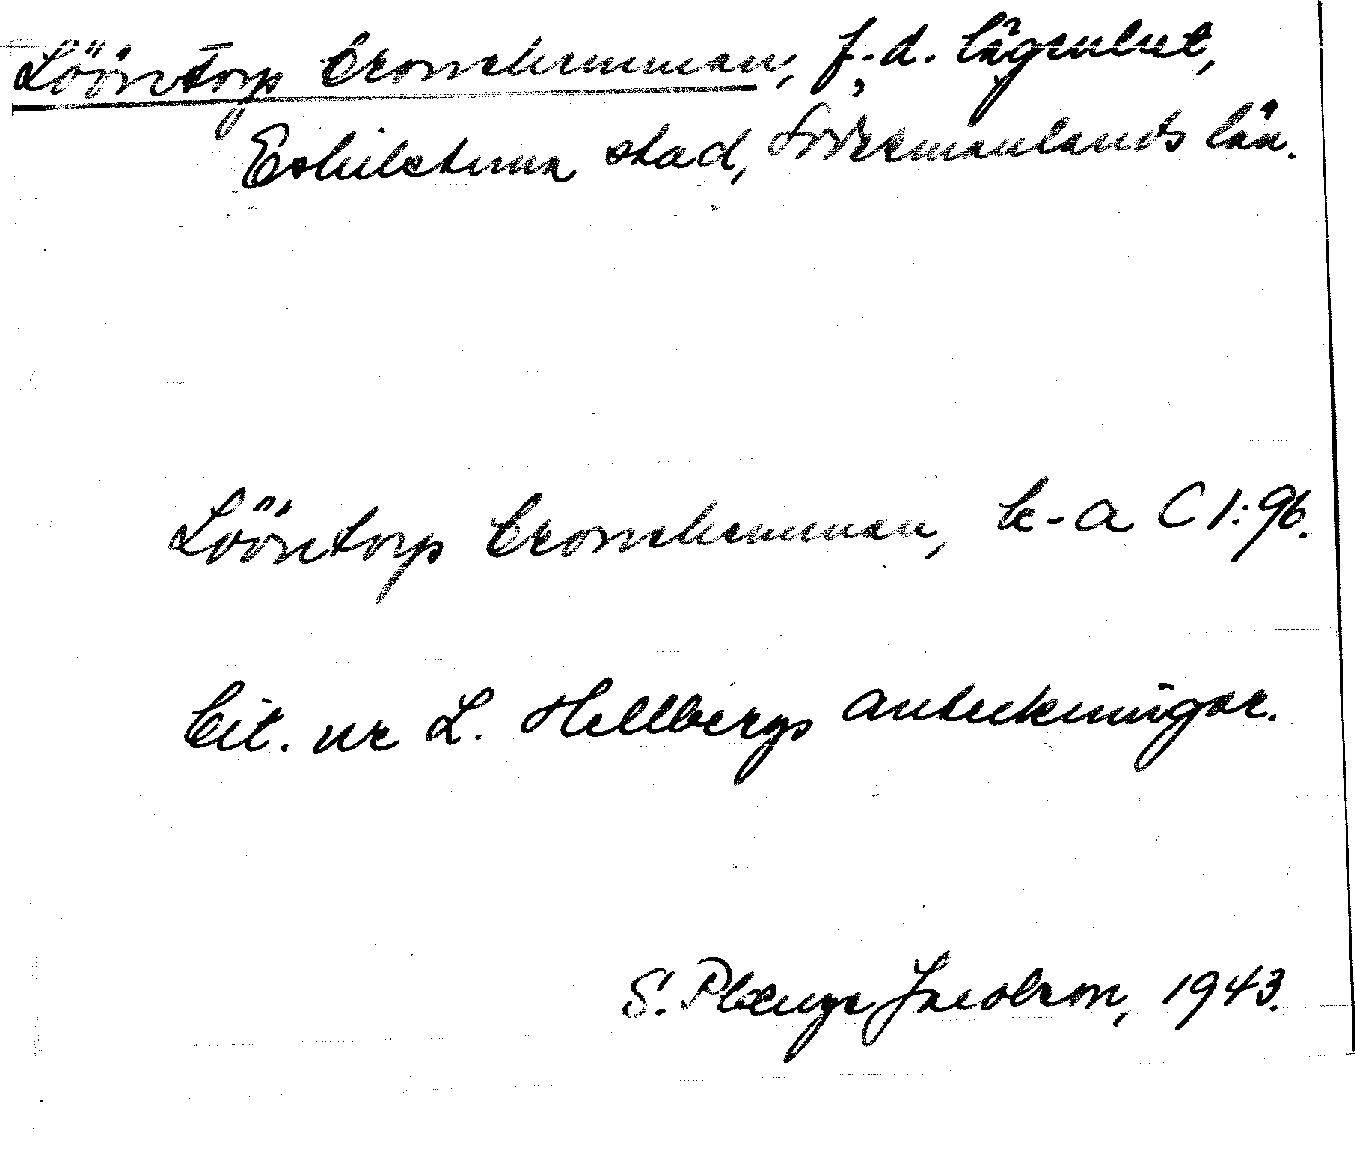 Lööntorp Cronohemman, f. d. lägenhet,
Eskilstuna stad, Södermanlands län.
Lööntorp Cronohemman, k-a C 1:96.
Cit. ur L. Hellbergs anteckningar.
S. Plænge Jacobson, 1943.